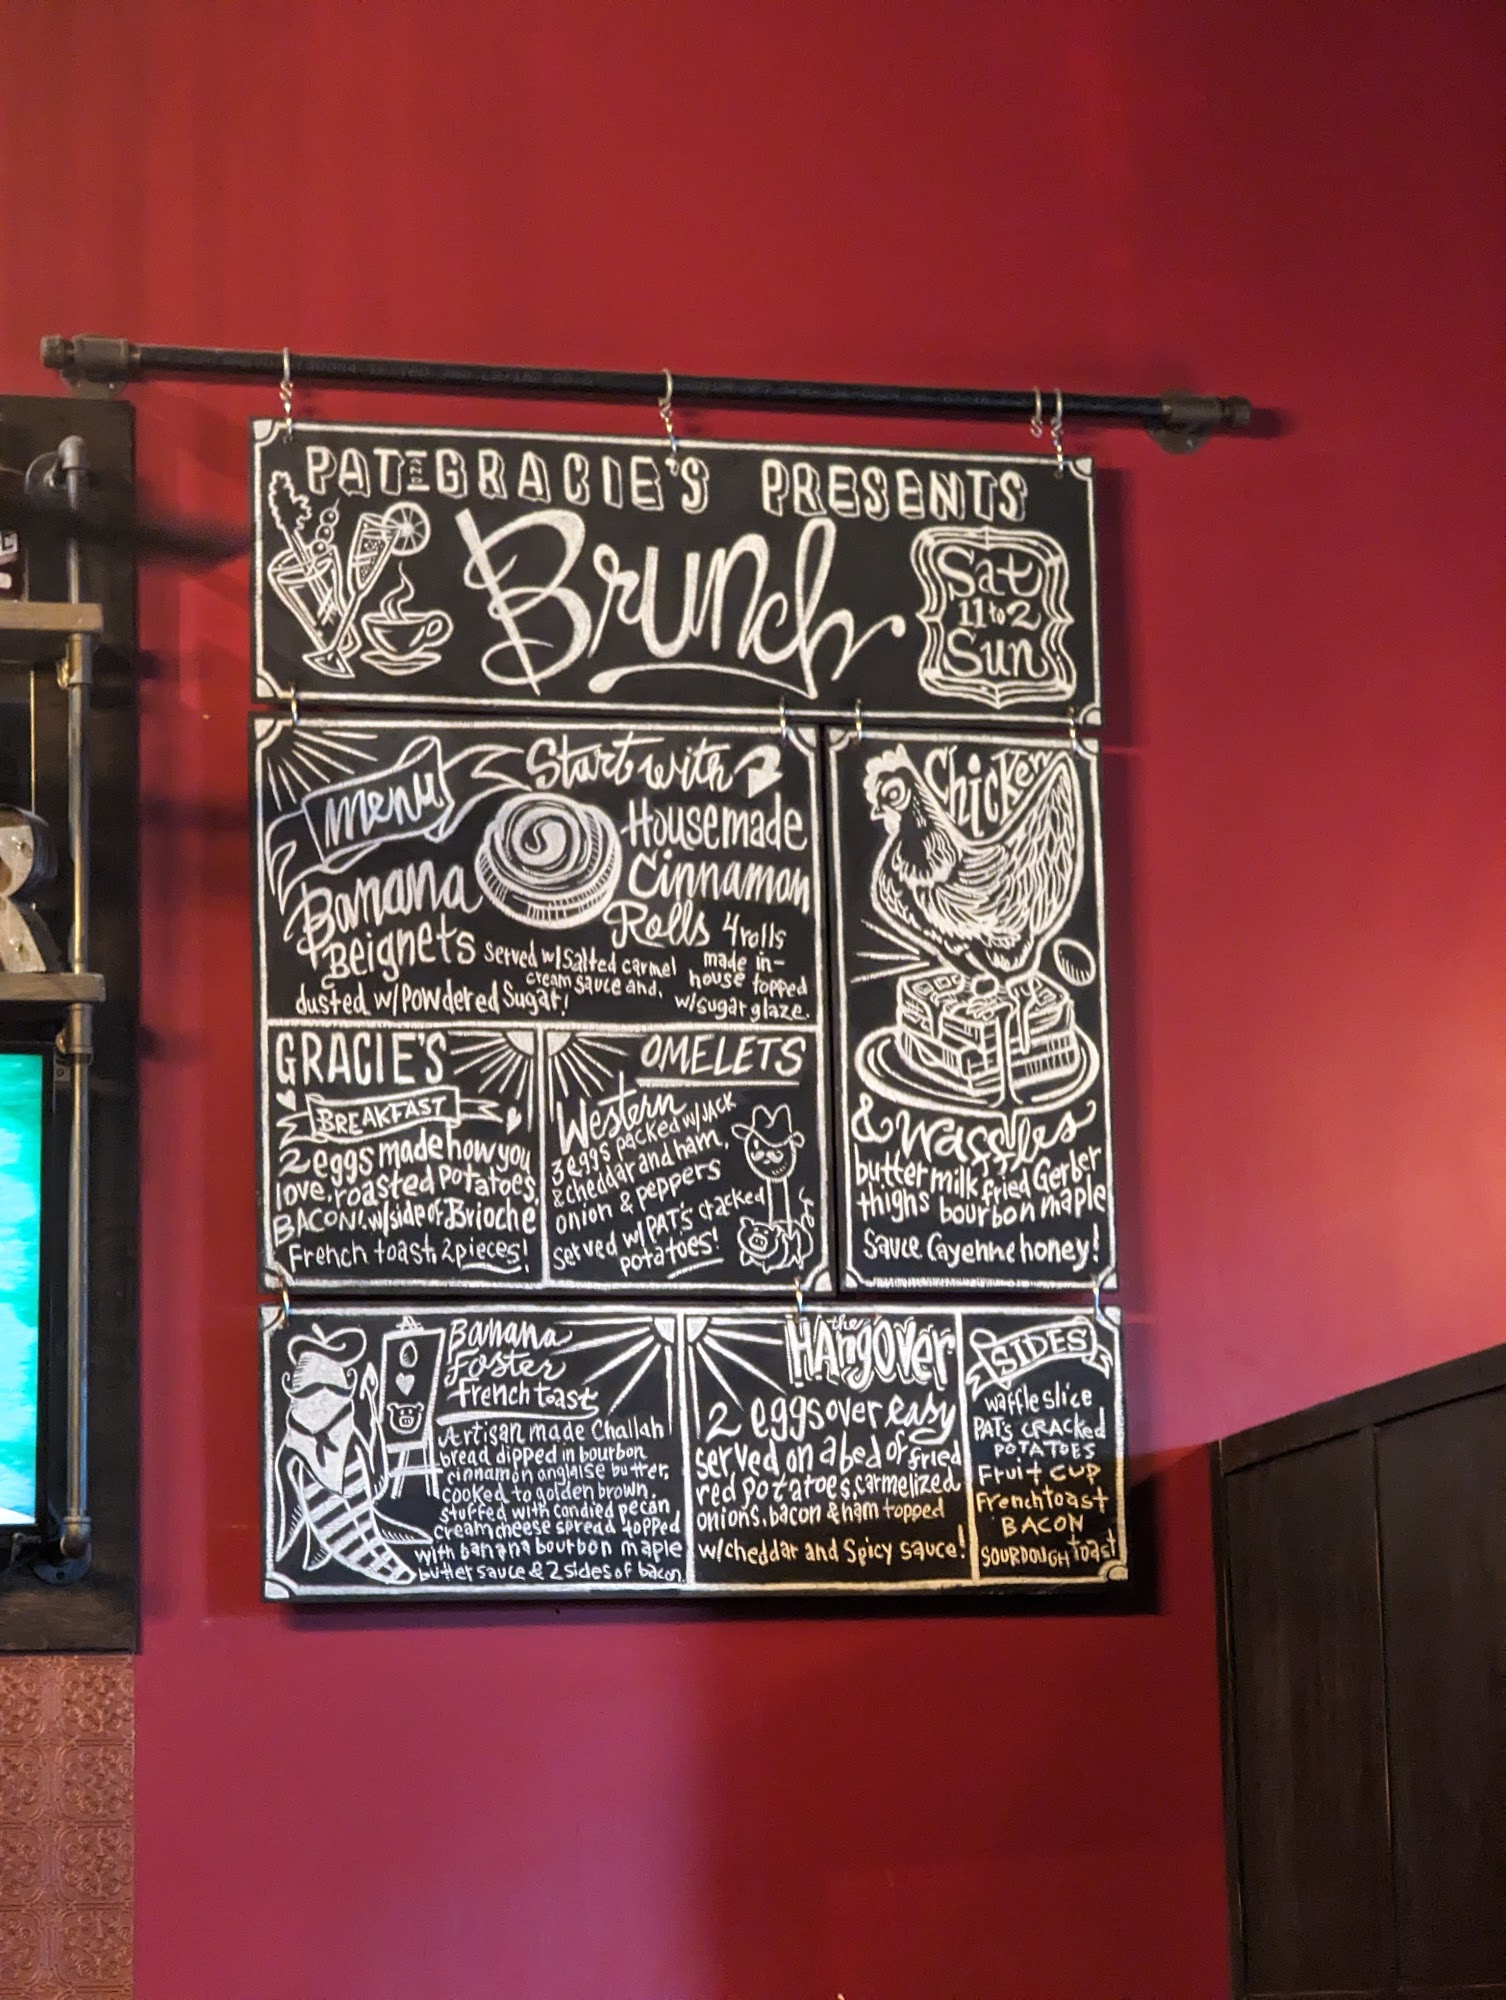 PAT AND GRACIE'S PRESENTS
Brunch
Sat
11 to 2
Sun
Menu
Start with
Housemade
Cinnamon
Rolls 4 rolls
made in-
house topped
w/sugar glaze.
Banana
Beignets served w/salted carmel
cream sauce and,
dusted w/Powdered Sugar!
GRACIE'S
BREAKFAST
2 eggs made how you
love, roasted potatoes,
BACON! w/side of Brioche
French toast, 2 pieces!
OMELETS
Western
3 eggs packed w/JACK
& cheddar and ham,
onion & peppers
served w/PAT'S cracked
potatoes!
Chicken
& Waffles
buttermilk fried Gerber
thighs bourbon maple
Sauce Cayenne honey!
Banana
Foster
French toast
Artisan made Challah
bread dipped in bourbon
cinnamon anglaise butter,
cooked to golden brown,
stuffed with candied pecan
creamcheese spread topped
with banana bourbon maple
butter sauce & 2 sides of bacon.
the
HAngOver
2 eggs over easy
served on a bed of fried
red potatoes, carmelized
onions, bacon & ham topped
w/cheddar and Spicy sauce!
SIDES
waffle slice
PAT'S CRACKed
POTATOES
Fruit CUP
French toast
BACON
SOURDOUGH toast
R